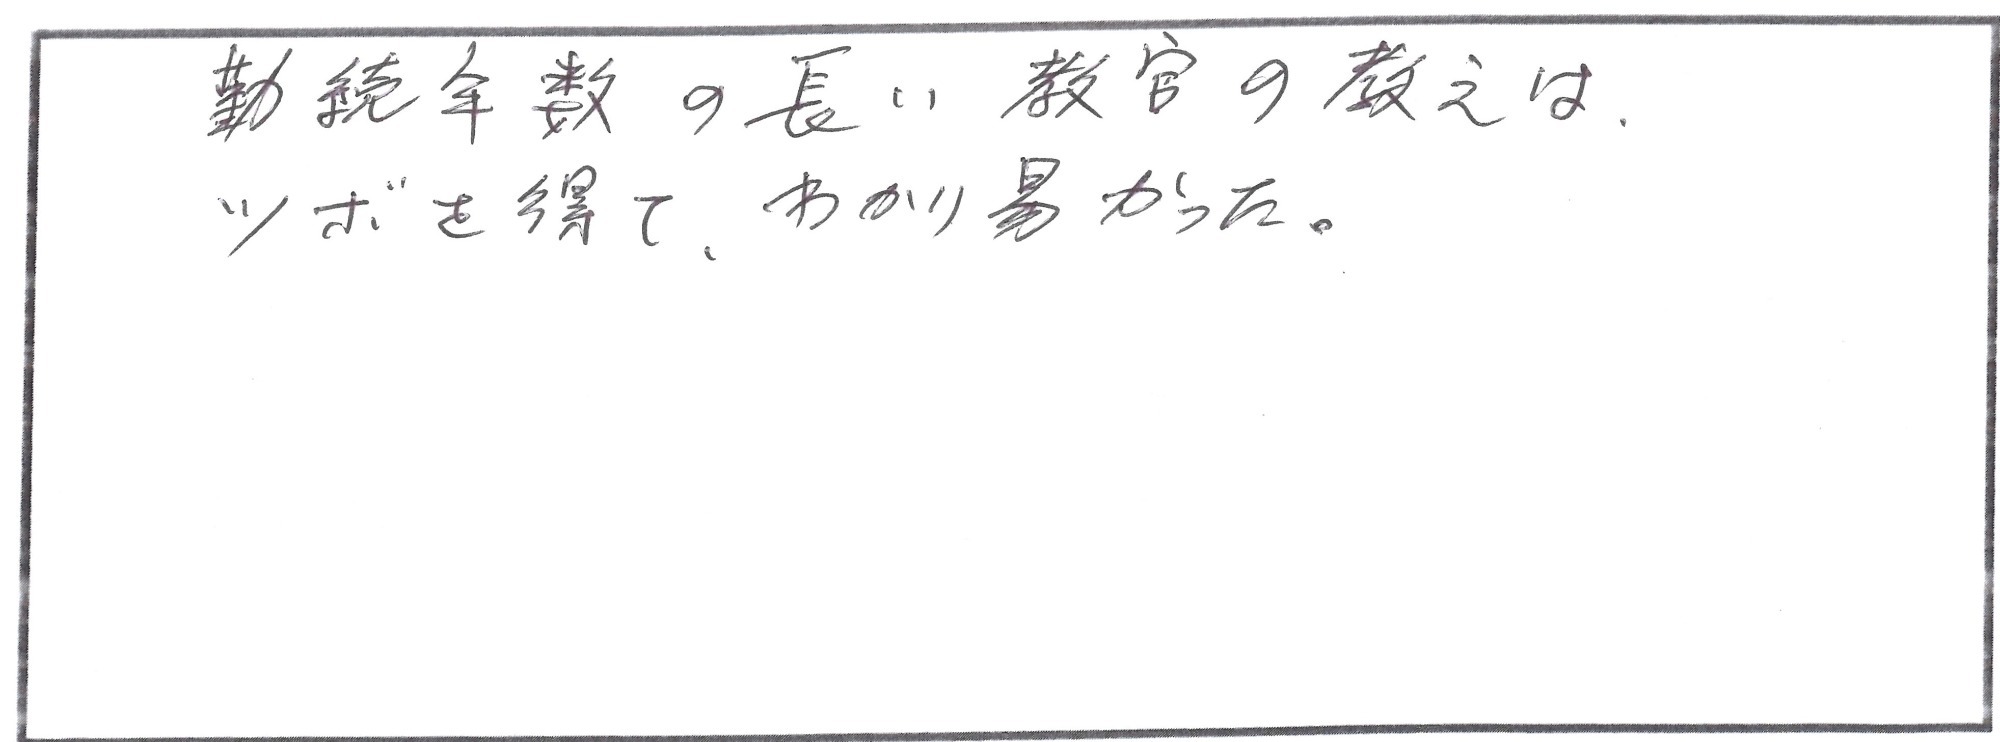 勤続年数の長い教官の教えは、
ツボを得て、わかり易かった。